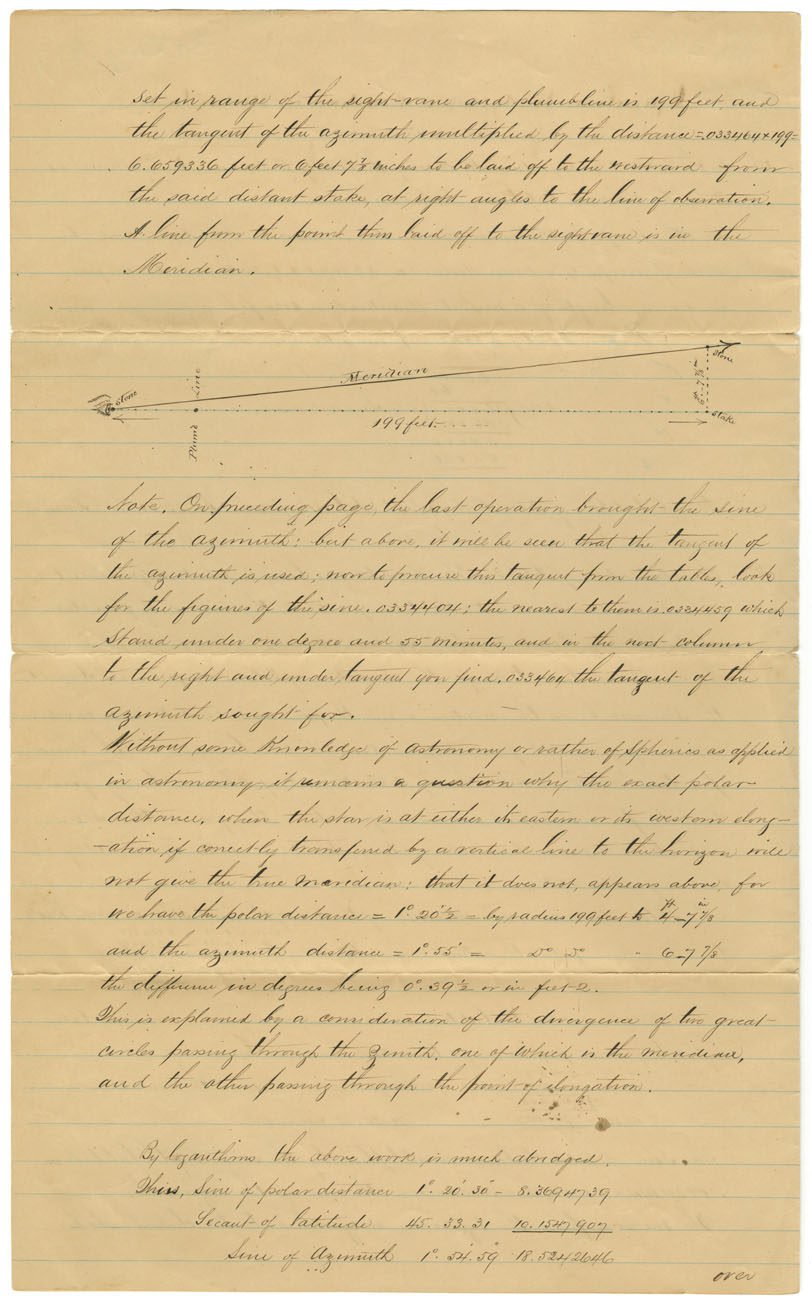 Set in range of the sight-vane and plumb line is 199 feet, and
the tangent of the azimuth multiplied by the distance = .033464 x 199 =
6.659336 feet or 6 feet 7 7/8 inches to be laid off to the westward from
the said distant stake, at right angles to the line of observation.
A line from the point thus laid off to the sight vane is in the
Meridian.
Stone
Plumb Line
Meridian
199 feet
6-7 7/8
Stone
Stake
Note. On preceding page, the last operation brought the sine
of the azimuth; but above, it will be seen that the tangent of
the azimuth is used; now to procure this tangent from the tables, look
for the figures of the sine .0334404; the nearest to them is .0334459 which
Stand under one degree and 55 minutes, and in the next column
to the right and under tangent you find .033464 the tangent of the
azimuth sought for.
Without some Knowledge of astronomy or rather of Spherics as applied
in astronomy it remains a question why the exact polar
distance, when the star is at either its eastern or its western elong-
-ation if correctly transfered by a vertical line to the horizon will
not give the true meridian; that it does not, appears above, for
we have the polar distance = 1°. 20' 1/2 = by radius 199 feet to 4 ft - 7 7/8 in
and the azimuth distance = 1°. 55' = Do Do " 6-7 7/8
the difference in degrees being 0°. 39 1/2 or in feet 2.
This is explained by a consideration of the divergence of two great
circles passing through the Zenith, one of which is the meridian,
and the other passing through the point of elongation.
By logarithms the above word is much abridged.
Thus, Sine of polar distance 1°. 20'. 30" - 8.3694739
Secant of latitude 45. 33. 31 10.1547907
Sine of Azimuth 1°. 54'. 59" 18.5242646
over